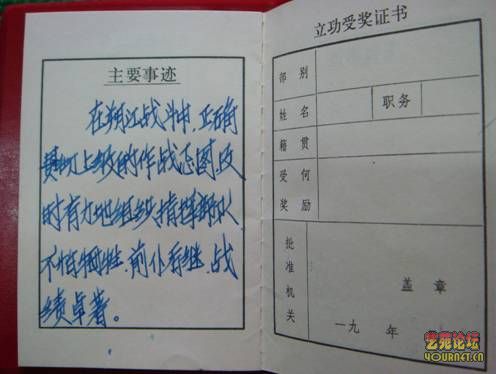 主要事迹
在朔江战斗中,正确
贯彻上级的作战意图,及
时有力地组织指挥部队,
不怕牺牲,前仆后继,战
绩卓著。
立功受奖证书
部别
姓名 职务
籍贯
受何奖励
批准机关
盖章
一九 年
艺苑论坛
YOURNET.CN